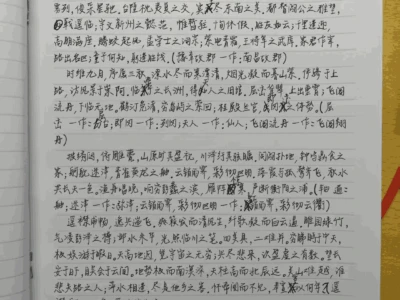 雾列,俊采星驰。台隍枕夷夏之交,宾尽东南之美。都督阎公之雅望,
棨戟遥临;宇文新州之懿范,襜帷暂驻。十旬休假,胜友如云;千里逢迎,
高朋满座。腾蛟起凤,孟学士之词宗;紫电青霜,王将军之武库。家君作宰,
路出名区;童子何知,躬逢胜饯。(豫章故郡 一作:南昌故郡)
时维九月,序属三秋。潦水尽而寒潭清,烟光凝而暮山紫。俨骖騑于上
路,访风景于崇阿;临帝子之长洲,得天人之旧馆。层峦耸翠,上出重霄;飞阁
流丹,下临无地。鹤汀凫渚,穷岛屿之萦回;桂殿兰宫,即冈峦之体势。(层
峦 一作:层台;即冈 一作:列冈;天人 一作:仙人;飞阁流丹 一作:飞阁翔
丹)
披绣闼,俯雕甍,山原旷其盈视,川泽纡其骇瞩。闾阎扑地,钟鸣鼎食之
家;舸舰迷津,青雀黄龙之舳。云销雨霁,彩彻区明。落霞与孤鹜齐飞,秋水
共长天一色。渔舟唱晚,响穷彭蠡之滨;雁阵惊寒,声断衡阳之浦。(轴 通:
舳;迷津 一作:弥津;云销雨霁,彩彻区明 一作:虹销雨霁,彩彻云衢)
遥襟甫畅,逸兴遄飞。爽籁发而清风生,纤歌凝而白云遏。睢园绿竹,
气凌彭泽之樽;邺水朱华,光照临川之笔。四美具,二难并。穷睇眄于中天,
极娱游于暇日。天高地迥,觉宇宙之无穷;兴尽悲来,识盈虚之有数。望长
安于日下,目吴会于云间。地势极而南溟深,天柱高而北辰远。关山难越,谁
悲失路之人;萍水相逢,尽是他乡之客。怀帝阍而不见,奉宣室以何年?